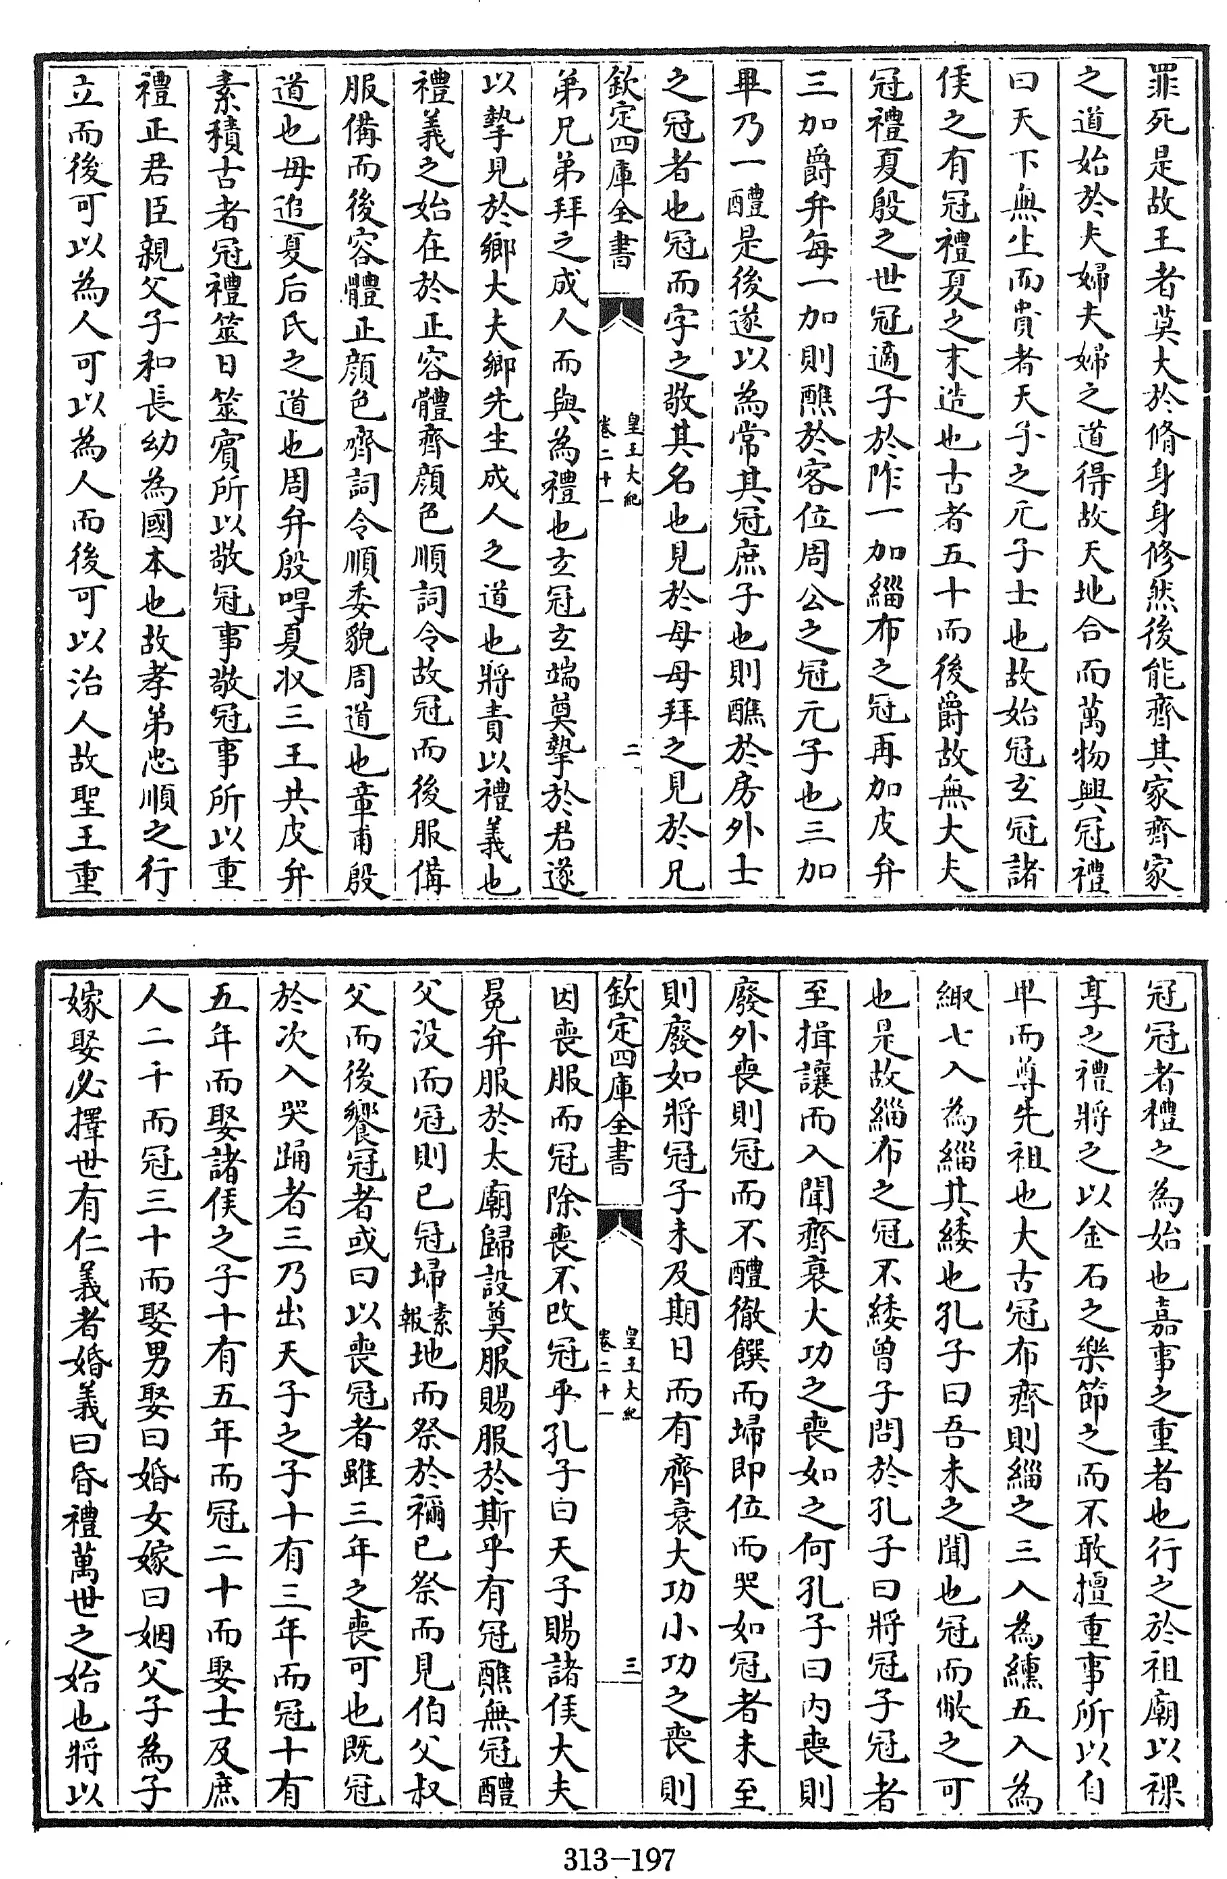 罪死是故王者莫大於脩身身修然後能齊其家齊家
之道始於夫婦夫婦之道得故天地合而萬物興冠禮
曰天下無生而貴者天子之元子士也故始冠玄冠諸
侯之有冠禮夏之末造也古者五十而後爵故無大夫
冠禮夏殷之世冠適子於阼一加緇布之冠再加皮弁
三加爵弁每一加則醮於客位周公之冠元子也三加
畢乃一醴是後遂以為常其冠庶子也則醮於房外士
之冠者也冠而字之敬其名也見於母母拜之見於兄
欽定四庫全書
皇王大紀
卷二十一
二
弟兄弟拜之成人而與為禮也玄冠玄端奠摯於君遂
以摯見於鄉大夫鄉先生成人之道也將責以禮義也
禮義之始在於正容體齊顏色順詞令故冠而後服備
服備而後容體正顏色齊詞令順委貌周道也章甫殷
道也毋追夏后氏之道也周弁殷哻夏收三王共皮弁
素積古者冠禮筮日筮賓所以敬冠事敬冠事所以重
禮正君臣親父子和長幼為國本也故孝弟忠順之行
立而後可以為人可以為人而後可以治人故聖王重
冠冠者禮之為始也嘉事之重者也行之於祖廟以祼
享之禮將之以金石之樂節之而不敢擅重事所以自
卑而尊先祖也大古冠布齊則緇之三入為纁五入為
緅七入為緇其緌也孔子曰吾未之聞也冠而敝之可
也是故緇布之冠不緌曾子問於孔子曰將冠子冠者
至揖讓而入聞齊衰大功之喪如之何孔子曰内喪則
廢外喪則冠而不醴徹饌而埽即位而哭如冠者未至
則廢如將冠子未及期日而有齊衰大功小功之喪則
欽定四庫全書
皇王大紀
卷二十一
三
因喪服而冠除喪不改冠乎孔子曰天子賜諸侯大夫
冕弁服於太廟歸設奠服賜服於斯乎有冠醮無冠醴
父没而冠則已冠埽素報地而祭於禰已祭而見伯父叔
父而後饗冠者或曰以喪冠者雖三年之喪可也既冠
於次入哭踊者三乃出天子之子十有三年而冠十有
五年而娶諸侯之子十有五年而冠二十而娶士及庶
人二十而冠三十而娶男娶曰婚女嫁曰姻父子為子
嫁娶必擇世有仁義者婚義曰昏禮萬世之始也將以
313-197